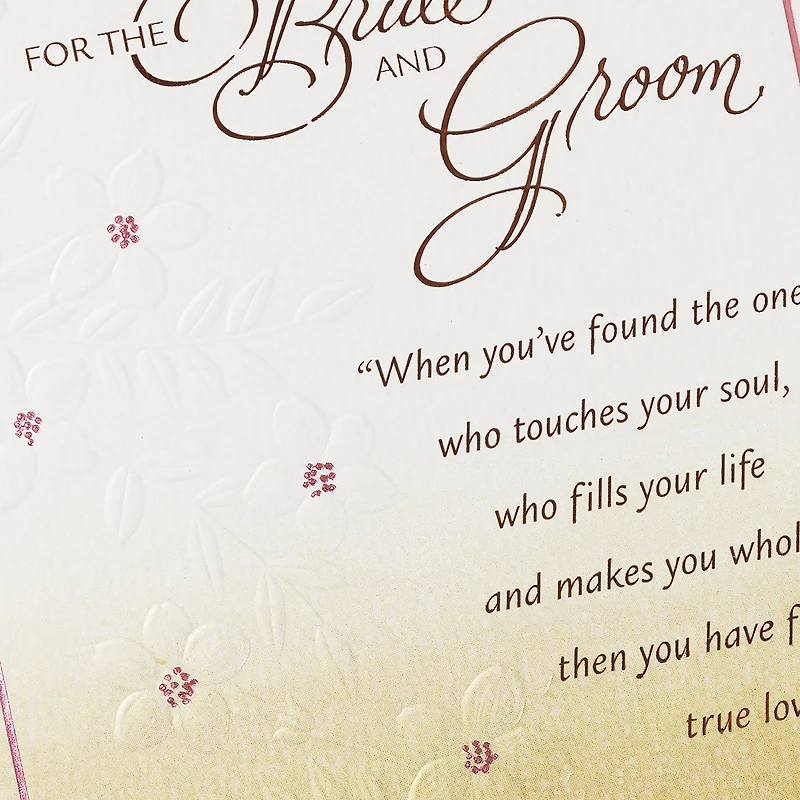 FOR THE Bride
AND Groom
“When you’ve found the one
who touches your soul,
who fills your life
and makes you whol
then you have f
true lov